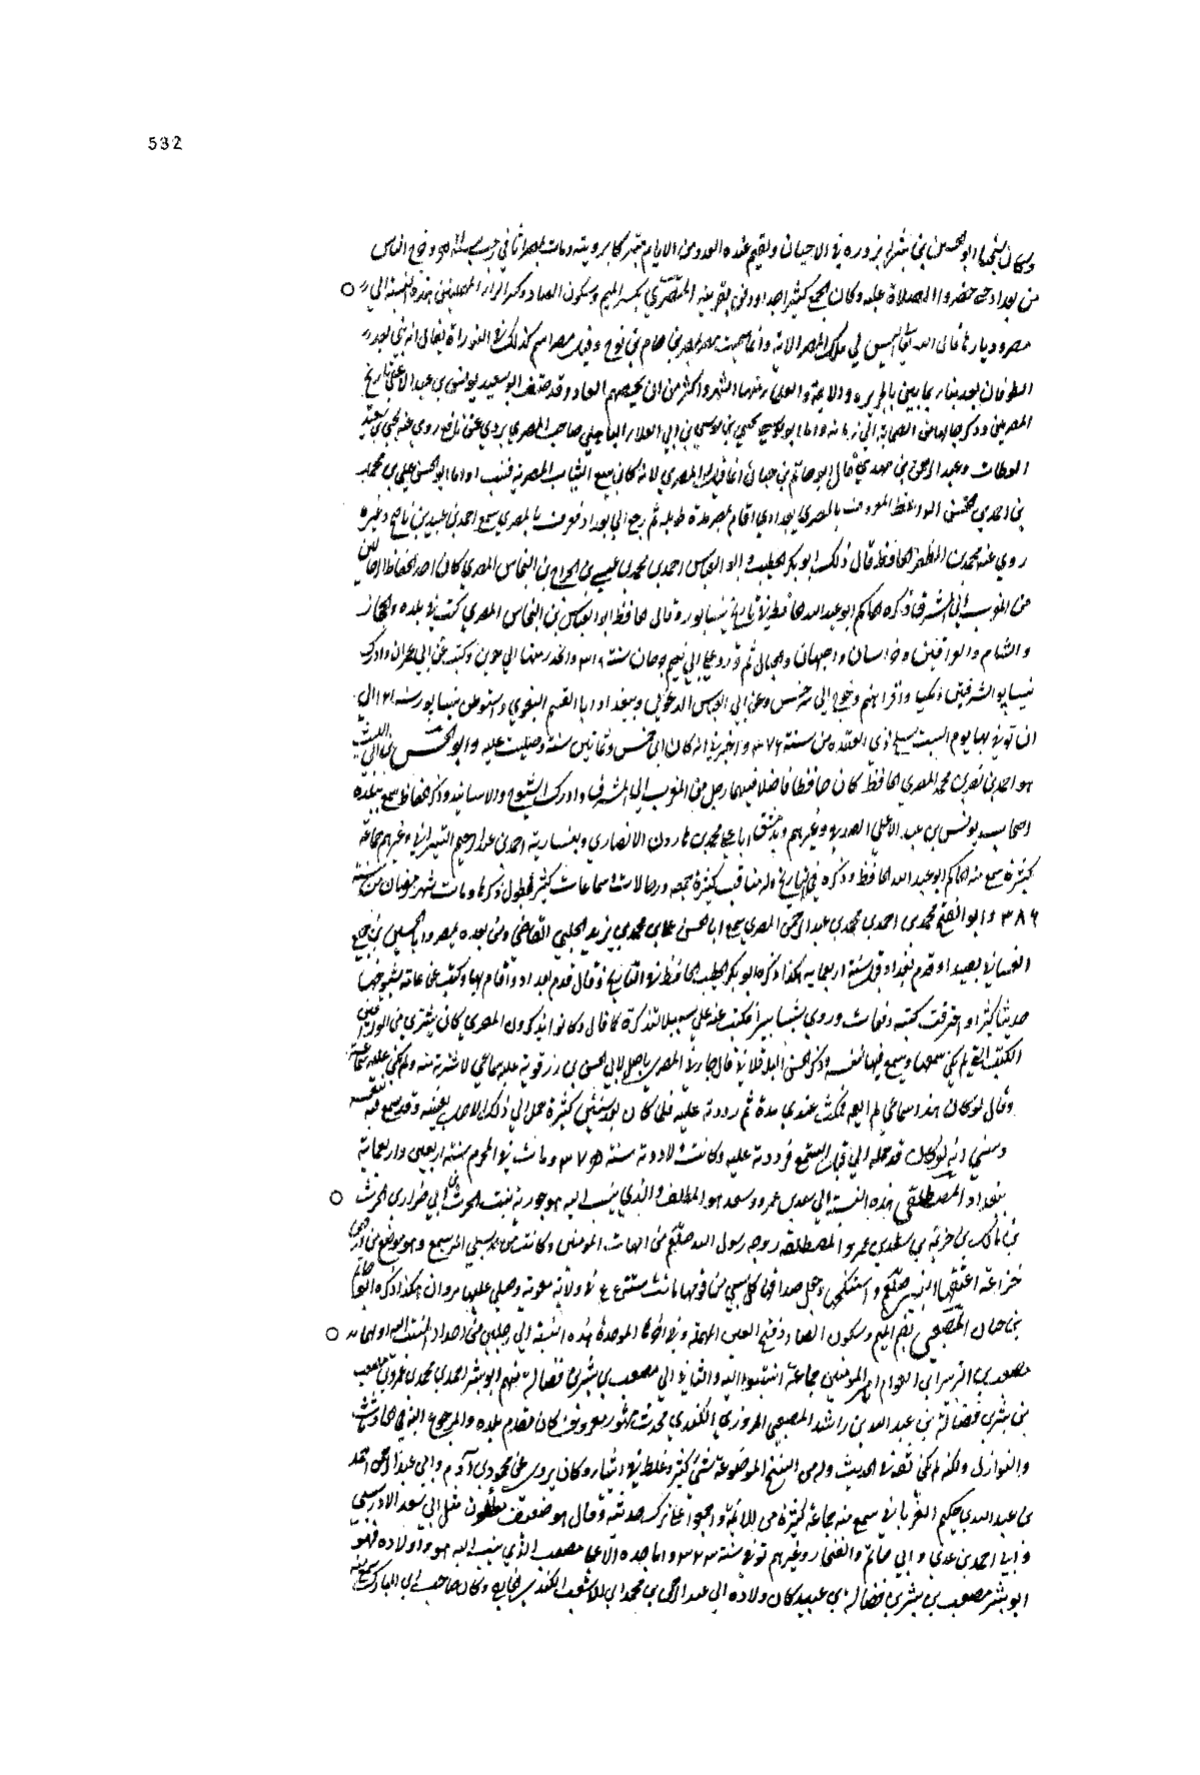 532
وكان شيخنا ابو الحسين بن بشران يزوره في الاحيان ويقيم عنده العدد من الايام متبركا برويته ومات
من بغداد حتى حضروا الصلاة عليه وكان الجمع كثيرا جدا ودفن بقريته المصري بكسر الميم وسكون الصاد وكسر الراء المهملتين هذه النسبة الى
مصر وديارها قال الله تعالى اليس لي ملك مصر الاية وانما سميت مصر بمصر بن حام بن نوح وقيل مصر اسم كذلك في التوراة يقال انه بنى بعد
الطوفان بعد بناء بابين بالجزيرة والايمة والعلماء منها اشهر واكثر من ان يحصيهم العاد وقد صنف ابو سعيد يونس بن عبد الاعلى تاريخ
المصريين وذكر جماعة من الصحابة الى زمانه واما ابو يحيى بن موسى بن ابي العلاء الباهلي صاحب المصري يروي عن نافع روى عنه يحيى بن سعيد
القطان وعبد الرحمن بن مهدي قال ابو حاتم بن حبان انما قيل له المصري لانه كان يبيع الثياب المصرية فنسب اليها واما ابو الحسن علي بن محمد
بن احمد بن الحسن الواعظ المعروف بالمصري بغدادي اقام بمصر مدة طويلة ثم رجع الى بغداد فعرف بالمصري سمع احمد بن عبيد بن ناصح وغيره
روى عنه محمد بن المظفر الحافظ قال ذلك ابو بكر الخطيب وابو العباس احمد بن محمد بن عيسى بن الجراح بن النحاس المصري كان احد الحفاظ الرحالين
من المغرب الى المشرق ذكره الحاكم ابو عبد الله الحافظ في تاريخ نيسابور وقال الحافظ ابو العباس بن النحاس المصري كتب في بلده والحجاز
والشام والعراقين وخراسان واصبهان والجبال ثم ورد على ابي نعيم جرجان سنة ٣١٩ وانحدر منها الى جوين وكتب عن ابي عمران وادرك
نيسابور الشرقيين ومكيا واقرانهم وخرج الى سرخس وعن ابي العباس الدغولي وببغداد ابا القسم البغوي واستوطن نيسابور سنة ٣٢١ الى
ان توفي بها يوم السبت سلخ ذي القعدة من سنة ٣٧٦ واخبرني انه كان ابن خمس وثمانين سنة وصليت عليه وابو الحسن بن ابي الليث
هو احمد بن نصر بن محمد المصري الحافظ كان حافظا فاضلا فهما رحل من المغرب الى المشرق وادرك الشيوخ والاسانيد وذاكر الحفاظ سمع ببلده
اصحاب يونس بن عبد الاعلى الصدفي وغيرهم وبدمشق ابا علي محمد بن هارون الانصاري وبقيسارية احمد بن عبد الرحيم القيسراني وغيرهم جماعة
كثيرة سمع منه الحاكم ابو عبد الله الحافظ وذكره في التاريخ وله مناقب كثيرة جمعه ورحالات وسماعات كثيرة يطول ذكرها ومات شهر رمضان من سنة
٣٨٦ وابو الفتح محمد بن احمد بن محمد بن عبد الرحمن المصري سمع ابا الحسن علي بن محمد بن يزيد الحلبي القاضي ومن بعده بمصر وابا الحسين بن جميع
الغساني بصيدا وقدم بغداد قبل سنة اربعماية هكذا ذكره ابو بكر الخطيب الحافظ في التاريخ وقال قدم بغداد واقام بها وكتب عن عامة شيوخها
حديثا كثيرا واحترقت كتبه دفعات وروى شيئا يسيرا فكتبت عنه على سبيل التذكرة كما قال وكانوا يذكرون ان المصري كان يشتري من الوراقين
الكتب التي لم يكن سمعها ويسمع فيها لنفسه وذكر الحسن البلدقلاني قال جاءني المصري باصل لابي الحسن بن رزقويه عليه سماعي لاشتريه منه ولم يكن عليه سماعه
وقال لو كان هذا سماعي لم ابعه فمكث عندي مدة ثم رددته عليه فلما كان بعد سنين كثيرة حمل الي ذلك الاصل بعينه وقد سمع فيه لنفسه
ونسي انه لو كان قد حمله الي قبل التسميع فرددته عليه وكانت ولادته سنة ٣٧٥ ومات في المحرم سنة اربعين واربعماية
ببغداد المصطلقي هذه النسبة الى سعد بن عمرو وسعد هو المطلق والذي ينسب اليه هو جويرية بنت الحرث بن ابي ضرار بن الحرث
بن مالك بن خزيمة بن سعد بن عمرو المصطلقية زوجة رسول الله صلعم من امهات المومنين وكانت من سبي المريسيع وهو موضع من ارض
خزاعة اعتقها النبي صلعم واستنكحها وجعل صداقها كل سبي من قومها ماتت سنة في ولاية معوية وصلى عليها مروان هكذا ذكره ابو حاتم
بن حبان المصعبي بضم الميم وسكون الصاد وفتح العين المهملة وفي اخرها الموحدة هذه النسبة الى رجلين من اجداد المنتسب اليه اولهما
مصعب بن الزبير بن العوام امير المومنين جماعة انتسبوا اليه والثاني الى مصعب بن بشر بن فضالة منهم ابو بشر احمد بن محمد بن عمرو بن مصعب
بن بشر بن فضالة بن عبد الله بن راشد المصعبي المروزي الكندي محدث مشهور معروف كان مقدم بلده والمرجوع اليه في الحادثات
والنوازل ولكنه لم يكن ثقة في الحديث وله من النسخ الموضوعة شيء كثير وغلط في اثباره وكان يروي عن محمود بن آدم وابي عبد الرحمن احمد
بن عبد الله بن حكيم الفرياناني سمع منه جماعة كثيرة من الائمة واجمعوا على ترك حديثه وقال هو ضعيف يطعنون مثل ابي سعد الادريسي
وابي احمد بن عدي وابي حاتم والغنجار وغيرهم توفي سنة ٣٢٣ واما جده الاعلى مصعب الذي ينسب اليه هو واولاده فهو
ابو بشر مصعب بن بشر بن فضالة بن عبيد كان ولاده الى عبد الرحمن بن محمد بن الاشعث الكندي وكان صاحب ابن المبارك سمع منه